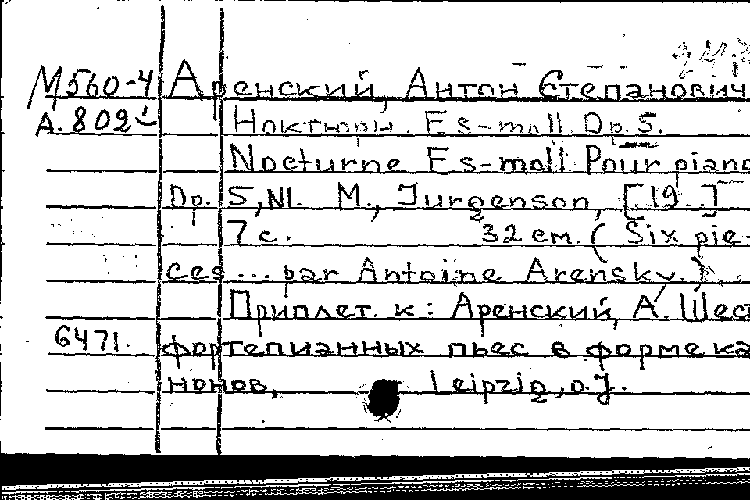 М560-4 Аренский, Антон Степанович
А.802 Ноктюрн. Es-moll Op. 5.
Nocturne Es-moll Pour piano
Op. 5, N1. M., Jurgenson, [19..]
7 с. 32 cm. (Six pie-
ces ... par Antoine Arensky.)
Приплет. к: Аренский, А. Шес
6471. фортепианных пьес в форме ка
нонов, Leipzig, o.J.